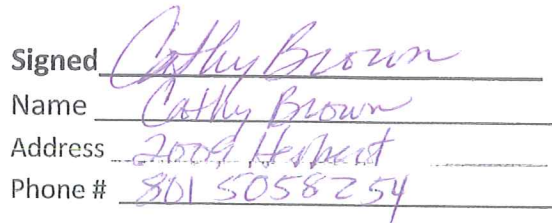 Signed Cathy Brown
Name Cathy Brown
Address 2009 Herbert
Phone # 801 5058254